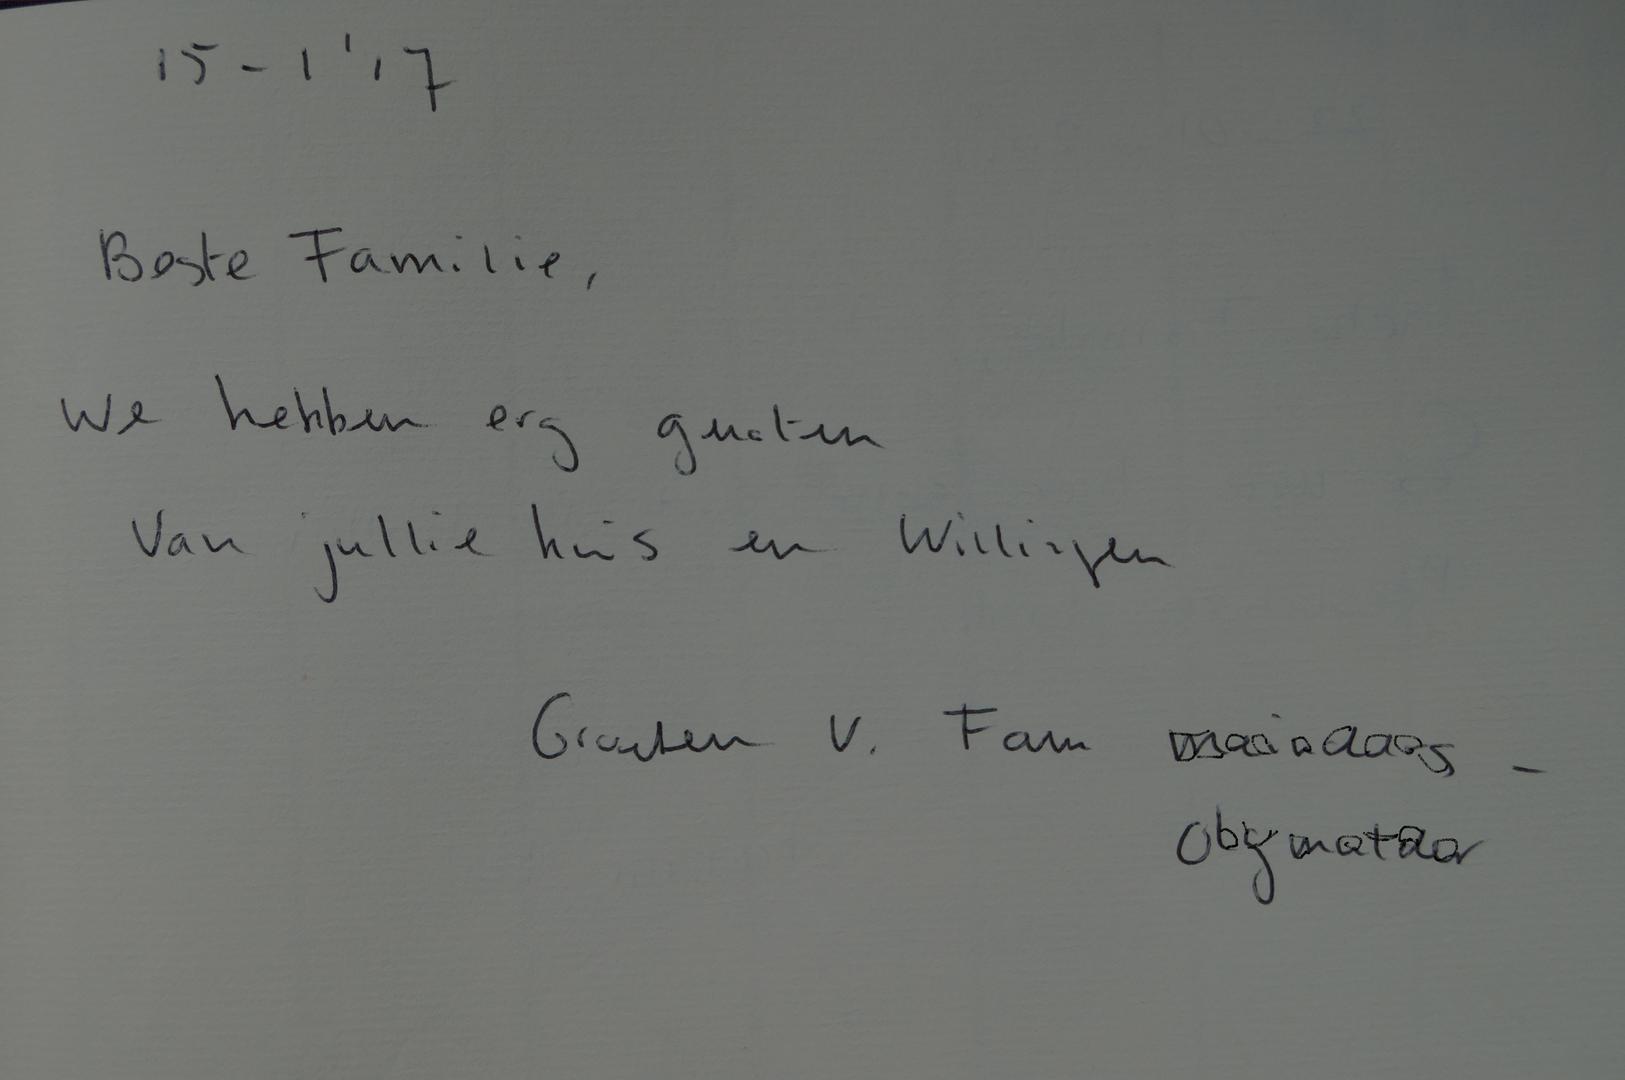 15-1'17
Beste Familie,
We hebben erg genoten
Van jullie huis en Willingen
Groeten v. Fam